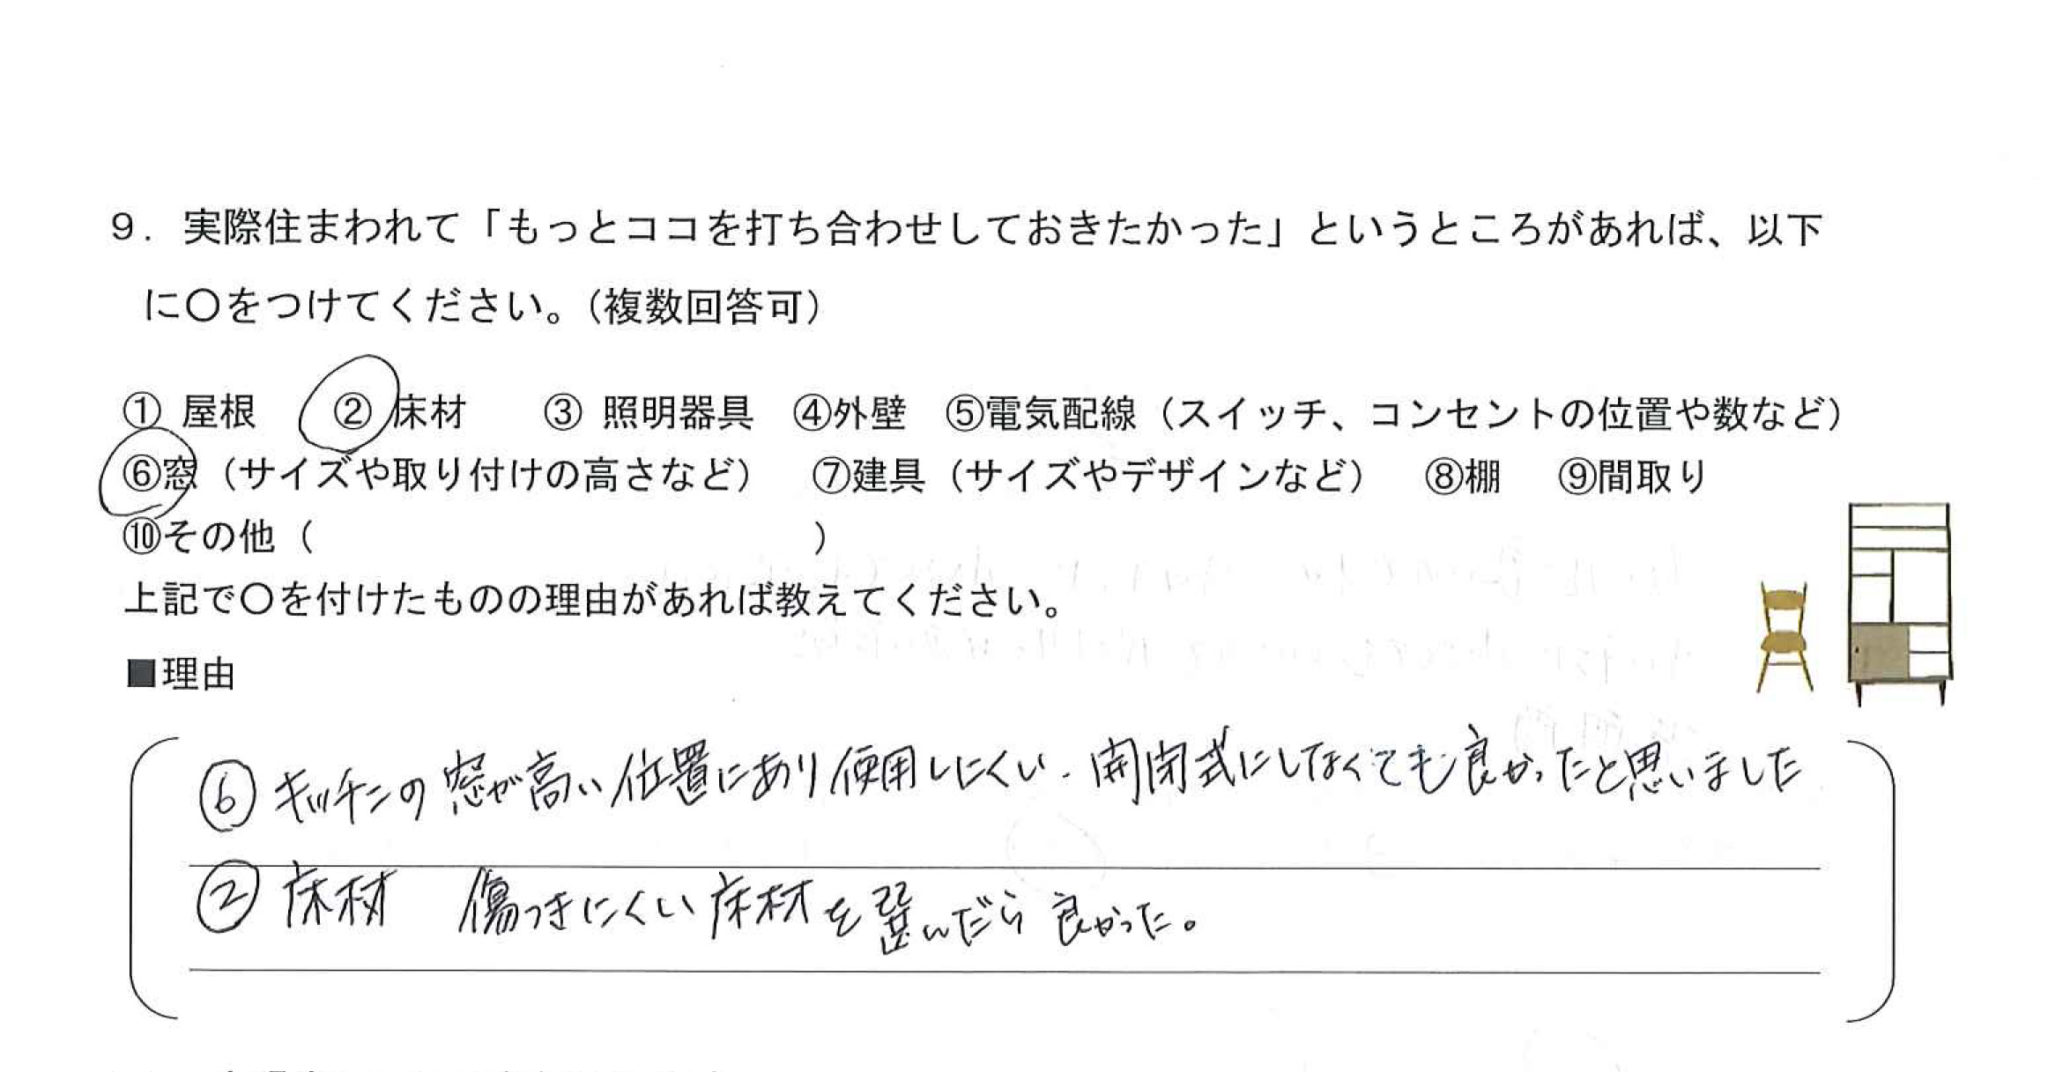 ９．実際住まわれて「もっとココを打ち合わせしておきたかった」というところがあれば、以下
に〇をつけてください。（複数回答可）
① 屋根　② 床材　③ 照明器具　④外壁　⑤電気配線（スイッチ、コンセントの位置や数など）
⑥窓（サイズや取り付けの高さなど）　⑦建具（サイズやデザインなど）　⑧棚　⑨間取り
⑩その他（　　　　　　　　　　　　　）
上記で〇を付けたものの理由があれば教えてください。
■理由
⑥ キッチンの窓が高い位置にあり使用しにくい．開閉式にしなくても良かったと思いました
② 床材　傷つきにくい床材を選んだら良かった。